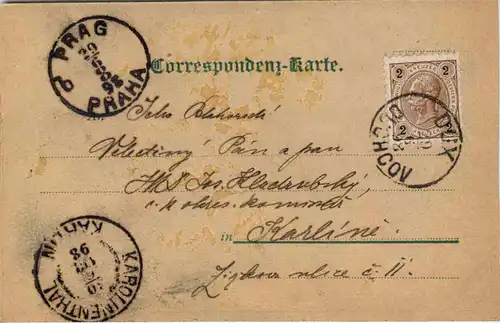 PRAG
PRAHA
Correspondenz-Karte.
2 2
2
DUX
DUCHCOV
Jeho Blahorodí
Veletěný Pán a pan
Jos. Hladrubský,
c. k. okres.
in Karlíně.
Žižkova ulice č. 11.
KAROLINENTHAL
KARLÍN
98